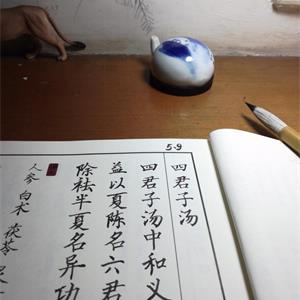 5-9
四君子汤
四君子汤中和义
益以夏陈名六君
除祛半夏名异功
人参 白术 茯苓